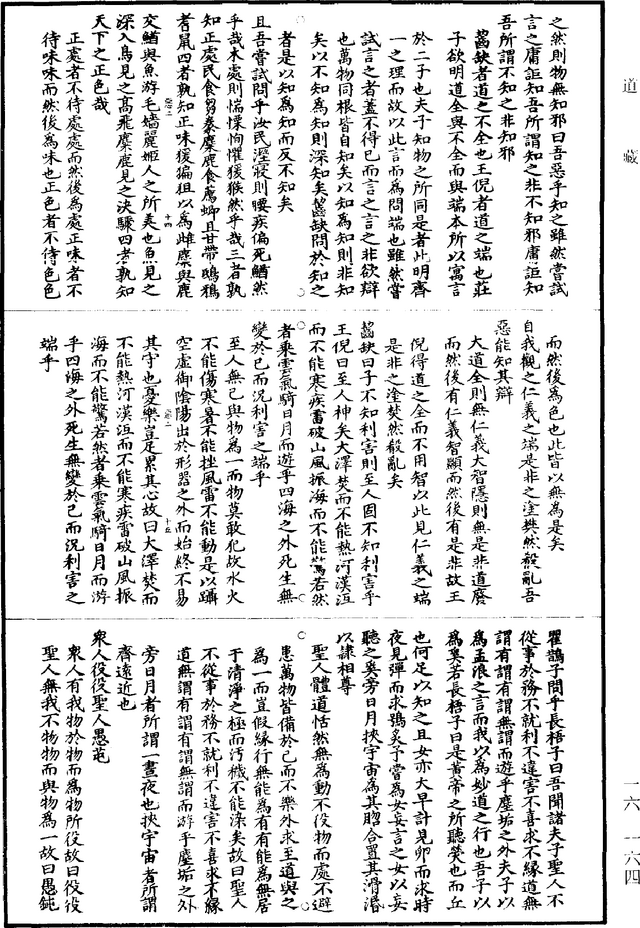 道藏
之然則物無知邪曰吾惡乎知之雖然嘗試
言之庸詎知吾所謂知之非不知邪庸詎知
吾所謂不知之非知邪
齧缺者道之不全也王倪者道之端也莊
子欲明道全與不全而與端本所以寓言
於二子也夫子知物之所同是者此明齊
一之理而故以此言而為問端也雖然嘗
試言之者蓋不得已而言之言之非欲辯
也萬物同根皆自知矣以知為知則非知
矣以不知為知則深知矣齧缺問於知之
者是以知為知而反不知矣
且吾嘗試問乎汝民溼寢則腰疾偏死鰌然
乎哉木處則惴慄恂懼猨猴然乎哉三者孰
知正處民食芻豢麋鹿食薦蝍且甘帶鴟鴉
耆鼠四者孰知正味猨猵狙以為雌麋與鹿
交鰌與魚游毛嬙麗姬人之所美也魚見之
深入鳥見之高飛麋鹿見之決驟四者孰知
天下之正色哉
正處者不待處處而然後為處正味者不
待味味而然後為味也正色者不待色色
而然後為色也此皆以無為是矣
自我觀之仁義之端是非之塗樊然殽亂吾
惡能知其辯
大道全則無仁義大智隱則無是非道廢
而然後有仁義智顯而然後有是非故王
倪得道之全而不用智以此見仁義之端
是非之塗樊然殽亂矣
齧缺曰子不知利害則至人固不知利害乎
王倪曰至人神矣大澤焚而不能熱河漢沍
而不能寒疾雷破山風振海而不能驚若然
者乘雲氣騎日月而遊乎四海之外死生無
變於已而況利害之端乎
至人無已與物為一而物莫敢犯故水火
不能傷寒暑不能挫風雷不能動是以躡
空虛御陰陽出於形器之外而始終不易
其守也憂樂豈足累其心故曰大澤焚而
不能熱河漢沍而不能寒疾雷破山風振
海而不能驚若然者乘雲氣騎日月而游
乎四海之外死生無變於已而況利害之
端乎
瞿鵲子問乎長梧子曰吾聞諸夫子聖人不
從事於務不就利不違害不喜求不緣道無
謂有謂有謂無謂而遊乎塵垢之外夫子以
為孟浪之言而我以為妙道之行也吾子以
為奚若長梧子曰是黃帝之所聽熒也而丘
也何足以知之且女亦大早計見卵而求時
夜見彈而求鴞炙予嘗為女妄言之女以妄
聽之奚旁日月挾宇宙為其脗合置其滑涽
以隸相尊
聖人體道恬然無為動不役物而處不避
患萬物皆備於已而不樂外求至道與之
為一而豈假緣行無能為有有能為無居
于清淨之極而污穢不能染矣故曰聖人
不從事於務不就利不違害不喜求不緣
道無謂有謂有謂無謂而游乎塵垢之外
旁日月者所謂一晝夜也挾宇宙者所謂
齊遠近也
眾人役役聖人愚芚
眾人有我物於物而為物所役故曰役役
聖人無我不物物而與物為一故曰愚鈍
一六　一六四